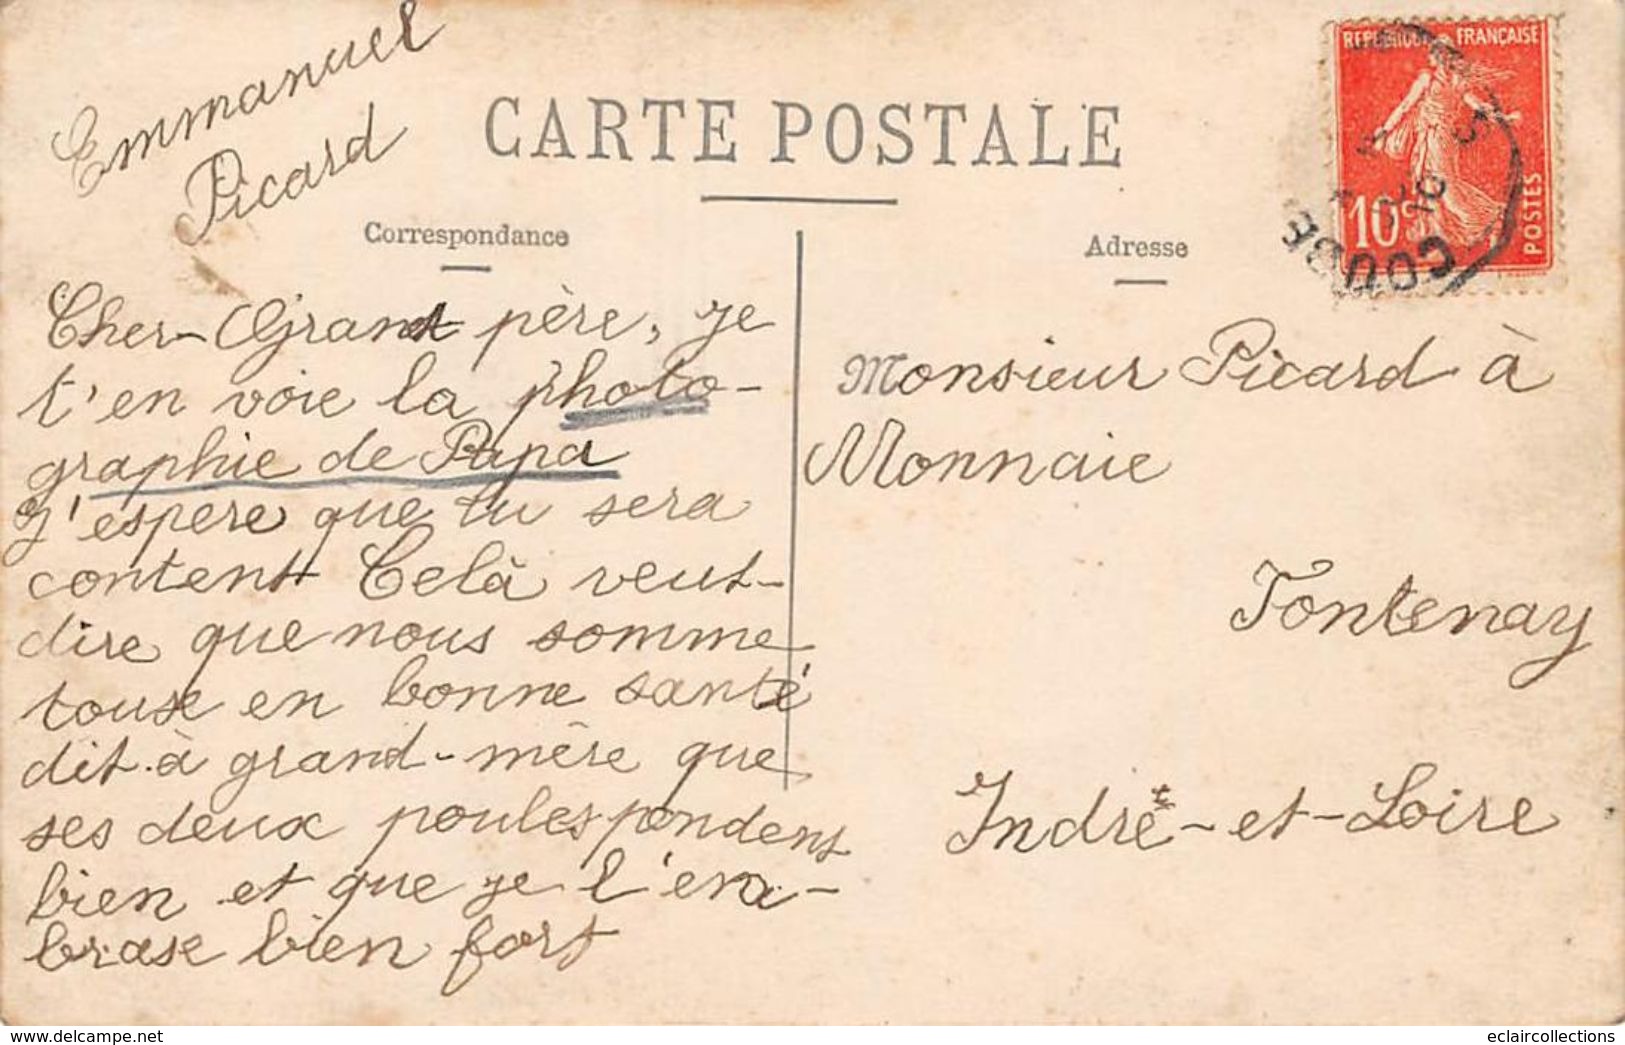 Emmanuel
Picard
CARTE POSTALE
Correspondance
Adresse
REPUBLIQUE FRANÇAISE
10c
POSTES
Cher-Grand père, je
t'en voie la photo-
graphie de Papa
J'espere que tu sera
content Celà veut-
dire que nous somme
tous en bonne santé
dit à grand-mère que
ses deux poules pondent
bien et que je l'em-
brase bien fort
Monsieur Picard à
Monnaie
Fontenay
Indre-et-Loire
www.delcampe.net
eclaircollections